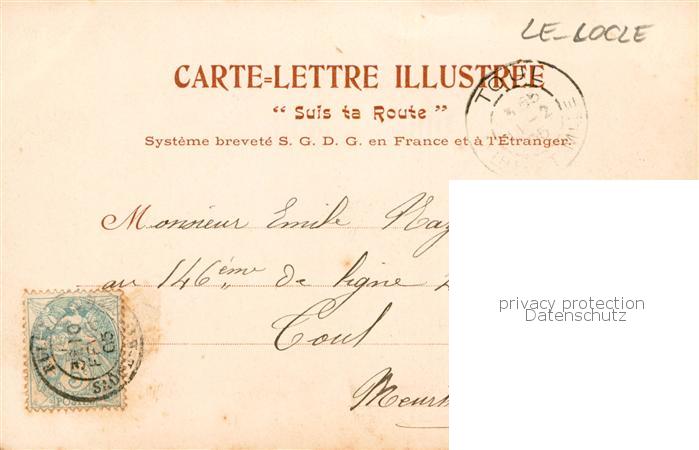 LE-LOCLE
CARTE=LETTRE ILLUSTRÉE
“ Suis ta Route ”
Système breveté S. G. D. G. en France et à l'Étranger.
TOUL
Monsieur Emile
au 146ème de ligne
Toul
privacy protection
Datenschutz
10
FEV
05
POSTES